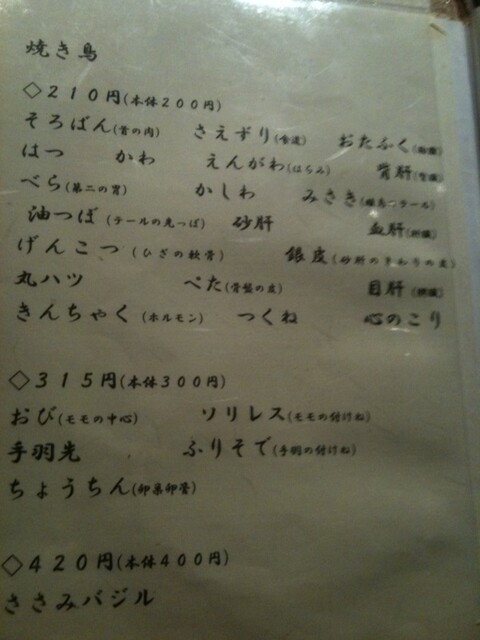 焼き鳥
◇210円(本体200円)
そろばん(首の肉) さえずり(食道) おたふく(胸腺)
はつ かわ えんがわ(はらみ) 背肝(腎臓)
べら(第二の胃) かしわ みさき(雌鳥のテール)
油つぼ(テールの先っぽ) 砂肝 血肝
げんこつ(ひざの軟骨) 銀皮(砂肝のまわりの皮)
丸ハツ ぺた(背盤の皮) 目肝
きんちゃく(ホルモン) つくね 心のこり
◇315円(本体300円)
おび(モモの中心) ソリレス(モモの付けね)
手羽先 ふりそで(手羽の付けね)
ちょうちん(卵巣卵管)
◇420円(本体400円)
ささみバジル